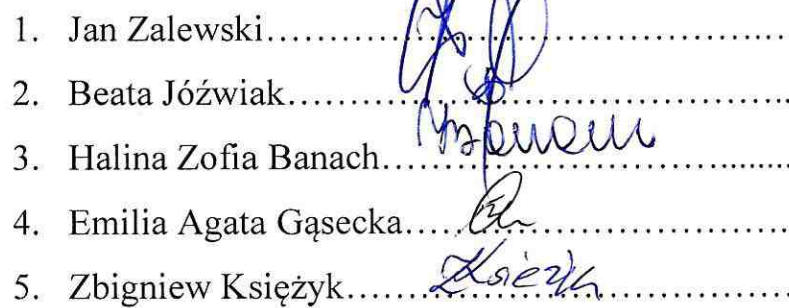 1. Jan Zalewski........................................
2. Beata Jóźwiak........................................
3. Halina Zofia Banach........................................
4. Emilia Agata Gąsecka........................................
5. Zbigniew Księżyk........................................